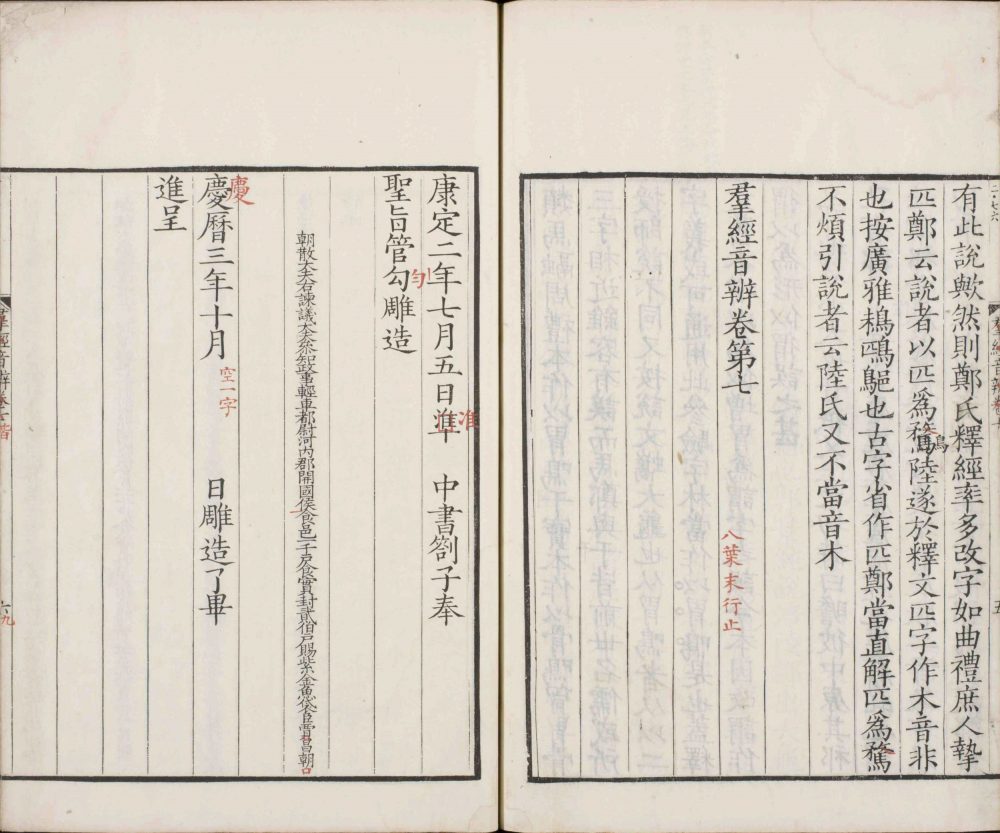 有此說歟然則鄭氏釋經率多改字如曲禮庶人摯
匹鄭云說者以匹爲鶩陸遂於釋文匹字作木音非
鳥
也按廣雅鶩也古字省作匹鄭當直解匹爲鶩
不煩引說者云陸氏又不當音木
羣經音辨卷第七
八葉末行止
康定二年七月五日準 中書劄子奉
准
聖旨管勾雕造
勻
朝散大夫右諫議大夫參知政事輕車都尉河內郡開國侯食邑一千戶食實封貳伯戶賜紫金魚袋臣賈昌朝
慶曆三年十月 日雕造了畢
慶
空一字
進呈